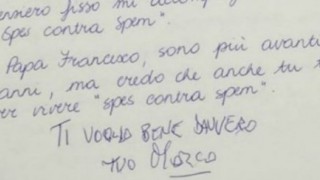 pensiero fisso mi accomp
"Spes contra spem".
Papa Francesco, sono più avanti
anni, ma credo che anche tu t
per vivere "spes contra spem".
TI VOGLIO BENE DAVVERO
TUO MARCO